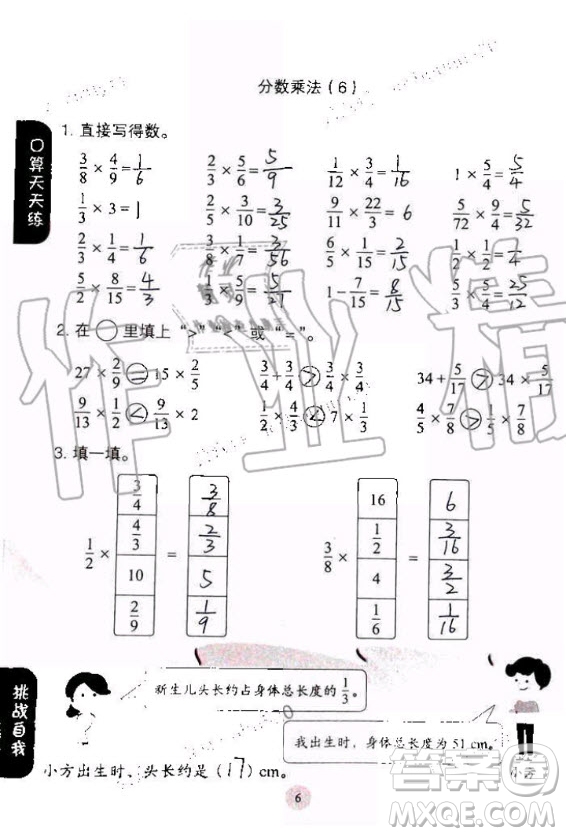 分数乘法(6)
口算天天练
1. 直接写得数。
3/8 × 4/9 = 1/6  2/3 × 5/6 = 5/9  1/12 × 3/4 = 1/16  1 × 5/4 = 5/4
1/3 × 3 = 1  2/5 × 3/10 = 3/25  9/11 × 22/3 = 6  5/72 × 9/4 = 5/32
2/3 × 1/4 = 1/6  3/8 × 1/7 = 3/56  6/5 × 1/9 = 2/15  1/2 × 1/2 = 1/4
5/2 × 8/15 = 4/3  1/9 × 5/3 = 5/27  1 - 7/15 = 8/15  5/3 × 5/4 = 25/12
2. 在○里填上“>”“<”或“=”。
27 × 2/9 = 15 × 2/5  3/4 + 3/4 > 3/4 × 3/4  34 + 5/17 > 34 × 5/17
9/13 × 1/2 < 9/13 × 2  1/2 × 4/3 < 7 × 1/3  4/5 × 7/8 > 1/5 × 7/8
3. 填一填。
1/2 ×
3/4
4/3
10
2/9
=
3/8
2/3
5
1/9
3/8 ×
16
1/2
4
1/6
=
6
3/16
3/2
1/16
挑战自我
新生儿头长约占身体总长度的1/3。
我出生时，身体总长度为51 cm。
小方
小方出生时、头长约是(17)cm。
6
作业精
答案圈
MXQE.COM